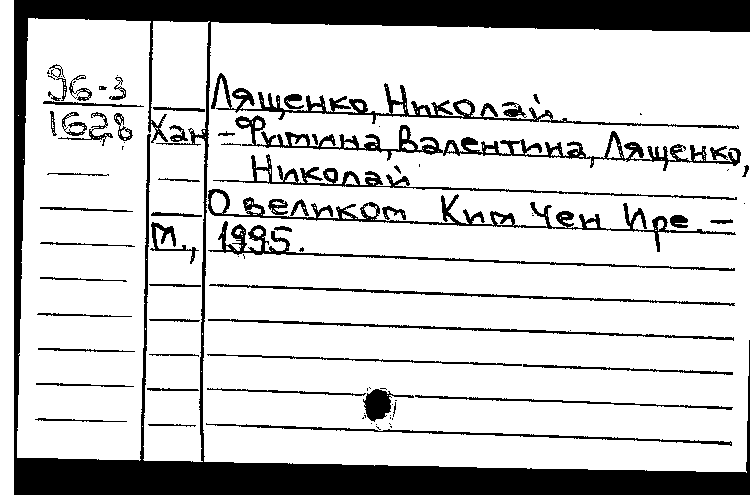 96-3 Лященко, Николай.
1628 Хан-Фитина, Валентина, Лященко,
Николай
О великом Ким Чен Ире. –
М., 1995.